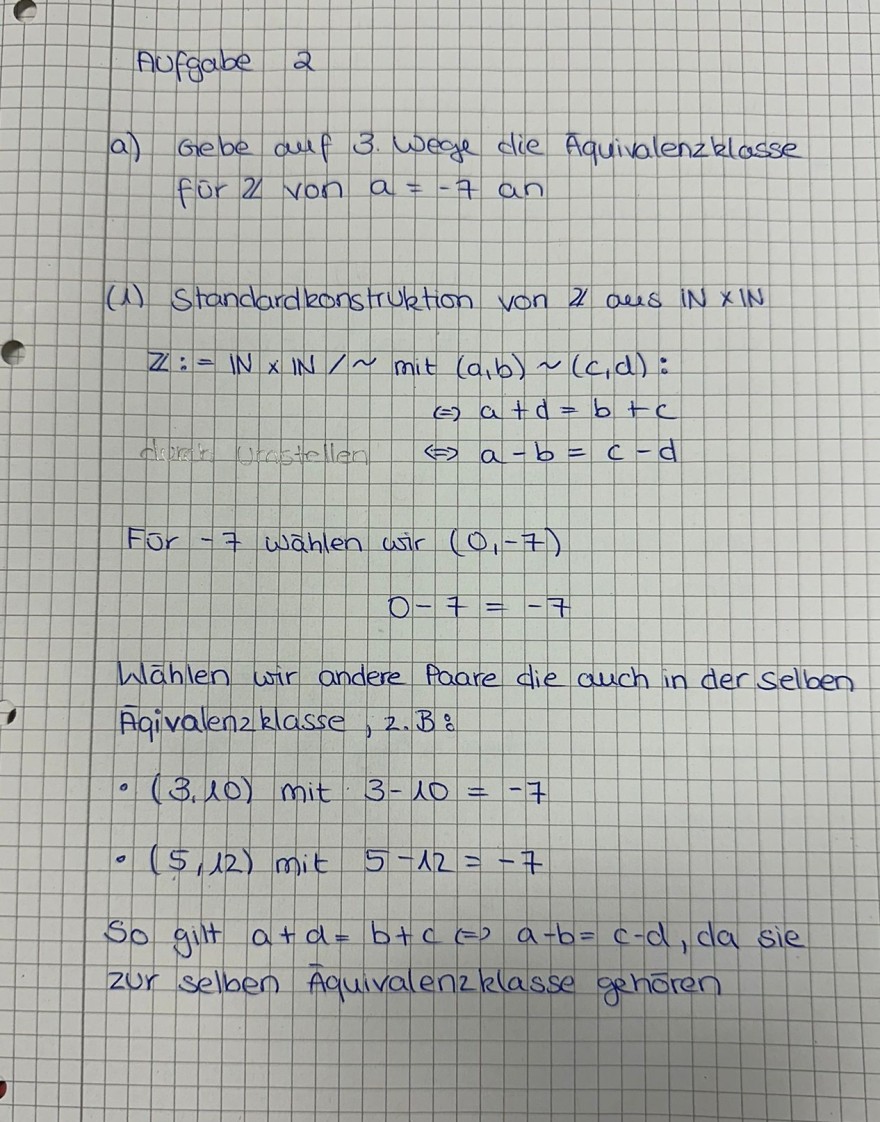 Aufgabe 2
a) Gebe auf 3. Wege die Äquivalenzklasse
für ℤ von a = -7 an
(1) Standardkonstruktion von ℤ aus ℕ x ℕ
ℤ := ℕ x ℕ / ~ mit (a,b) ~ (c,d) :
⇔ a + d = b + c
durch Umstellen ⇔ a - b = c - d
Für -7 wählen wir (0,-7)
0 - 7 = -7
Wählen wir andere Paare die auch in der selben
Äqivalenzklasse , z.B:
• (3,10) mit 3-10 = -7
• (5,12) mit 5-12 = -7
So gilt a + d = b + c ⇔ a-b = c-d, da sie
zur selben Äquivalenzklasse gehören